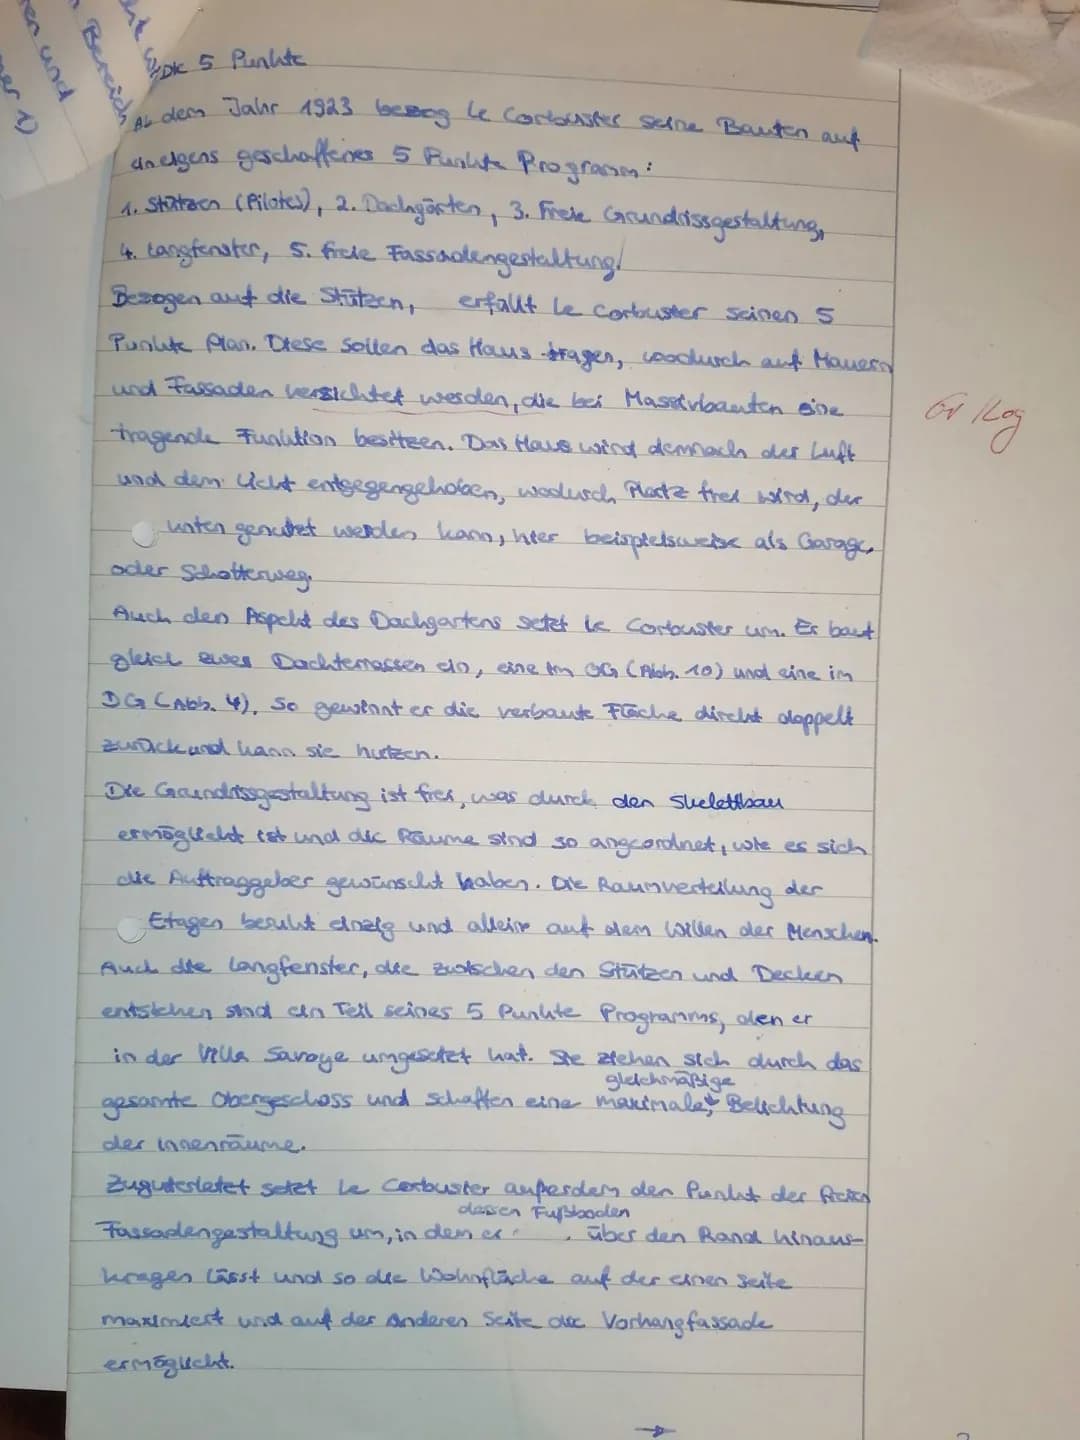 Die 5 Punkte
Ab dem Jahr 1923 bezog Le Corbusier seine Bauten auf
ein eigens geschaffenes 5 Punkte Programm:
1. Stützen (Pilotes), 2. Dachgärten, 3. Freie Grundrissgestaltung,
4. Langfenster, 5. freie Fassadengestaltung!
Bezogen auf die Stützen, erfüllt Le Corbusier seinen 5
Punkte Plan. Diese sollen das Haus tragen, wodurch auf Mauern
und Fassaden verzichtet werden, die bei Massivbauten eine
Gr / Log
tragende Funktion besitzen. Das Haus wird demnach der Luft
und dem Licht entgegengehoben, wodurch Platz frei wird, der
unten genutzt werden kann, hier beispielsweise als Garage,
oder Schotterweg.
Auch den Aspekt des Dachgartens setzt Le Corbusier um. Er baut
gleich zwei Dachterrassen ein, eine im OG (Abb. 10) und eine im
DG (Abb. 4). So gewinnt er die verbaute Fläche direkt doppelt
zurück und kann sie nutzen.
Die Grundrissgestaltung ist frei, was durch den Skelettbau
ermöglicht ist und die Räume sind so angeordnet, wie es sich
die Auftraggeber gewünscht haben. Die Raumverteilung der
Etagen beruht einzig und allein auf dem Willen der Menschen.
Auch die Langfenster, die zwischen den Stützen und Decken
entstehen sind ein Teil seines 5 Punkte Programms, den er
in der Villa Savoye umgesetzt hat. Sie ziehen sich durch das
gleichmäßige
gesamte Obergeschoss und schaffen eine maximale, Belichtung
der Innenräume.
Zuguterletzt setzt Le Corbusier außerdem den Punkt der freien
dessen Fußboden
Fassadengestaltung um, in dem er über den Rand hinaus-
kragen lässt und so die Wohnfläche auf der einen Seite
maximiert und auf der Anderen Seite die Vorhangfassade
ermöglicht.
→